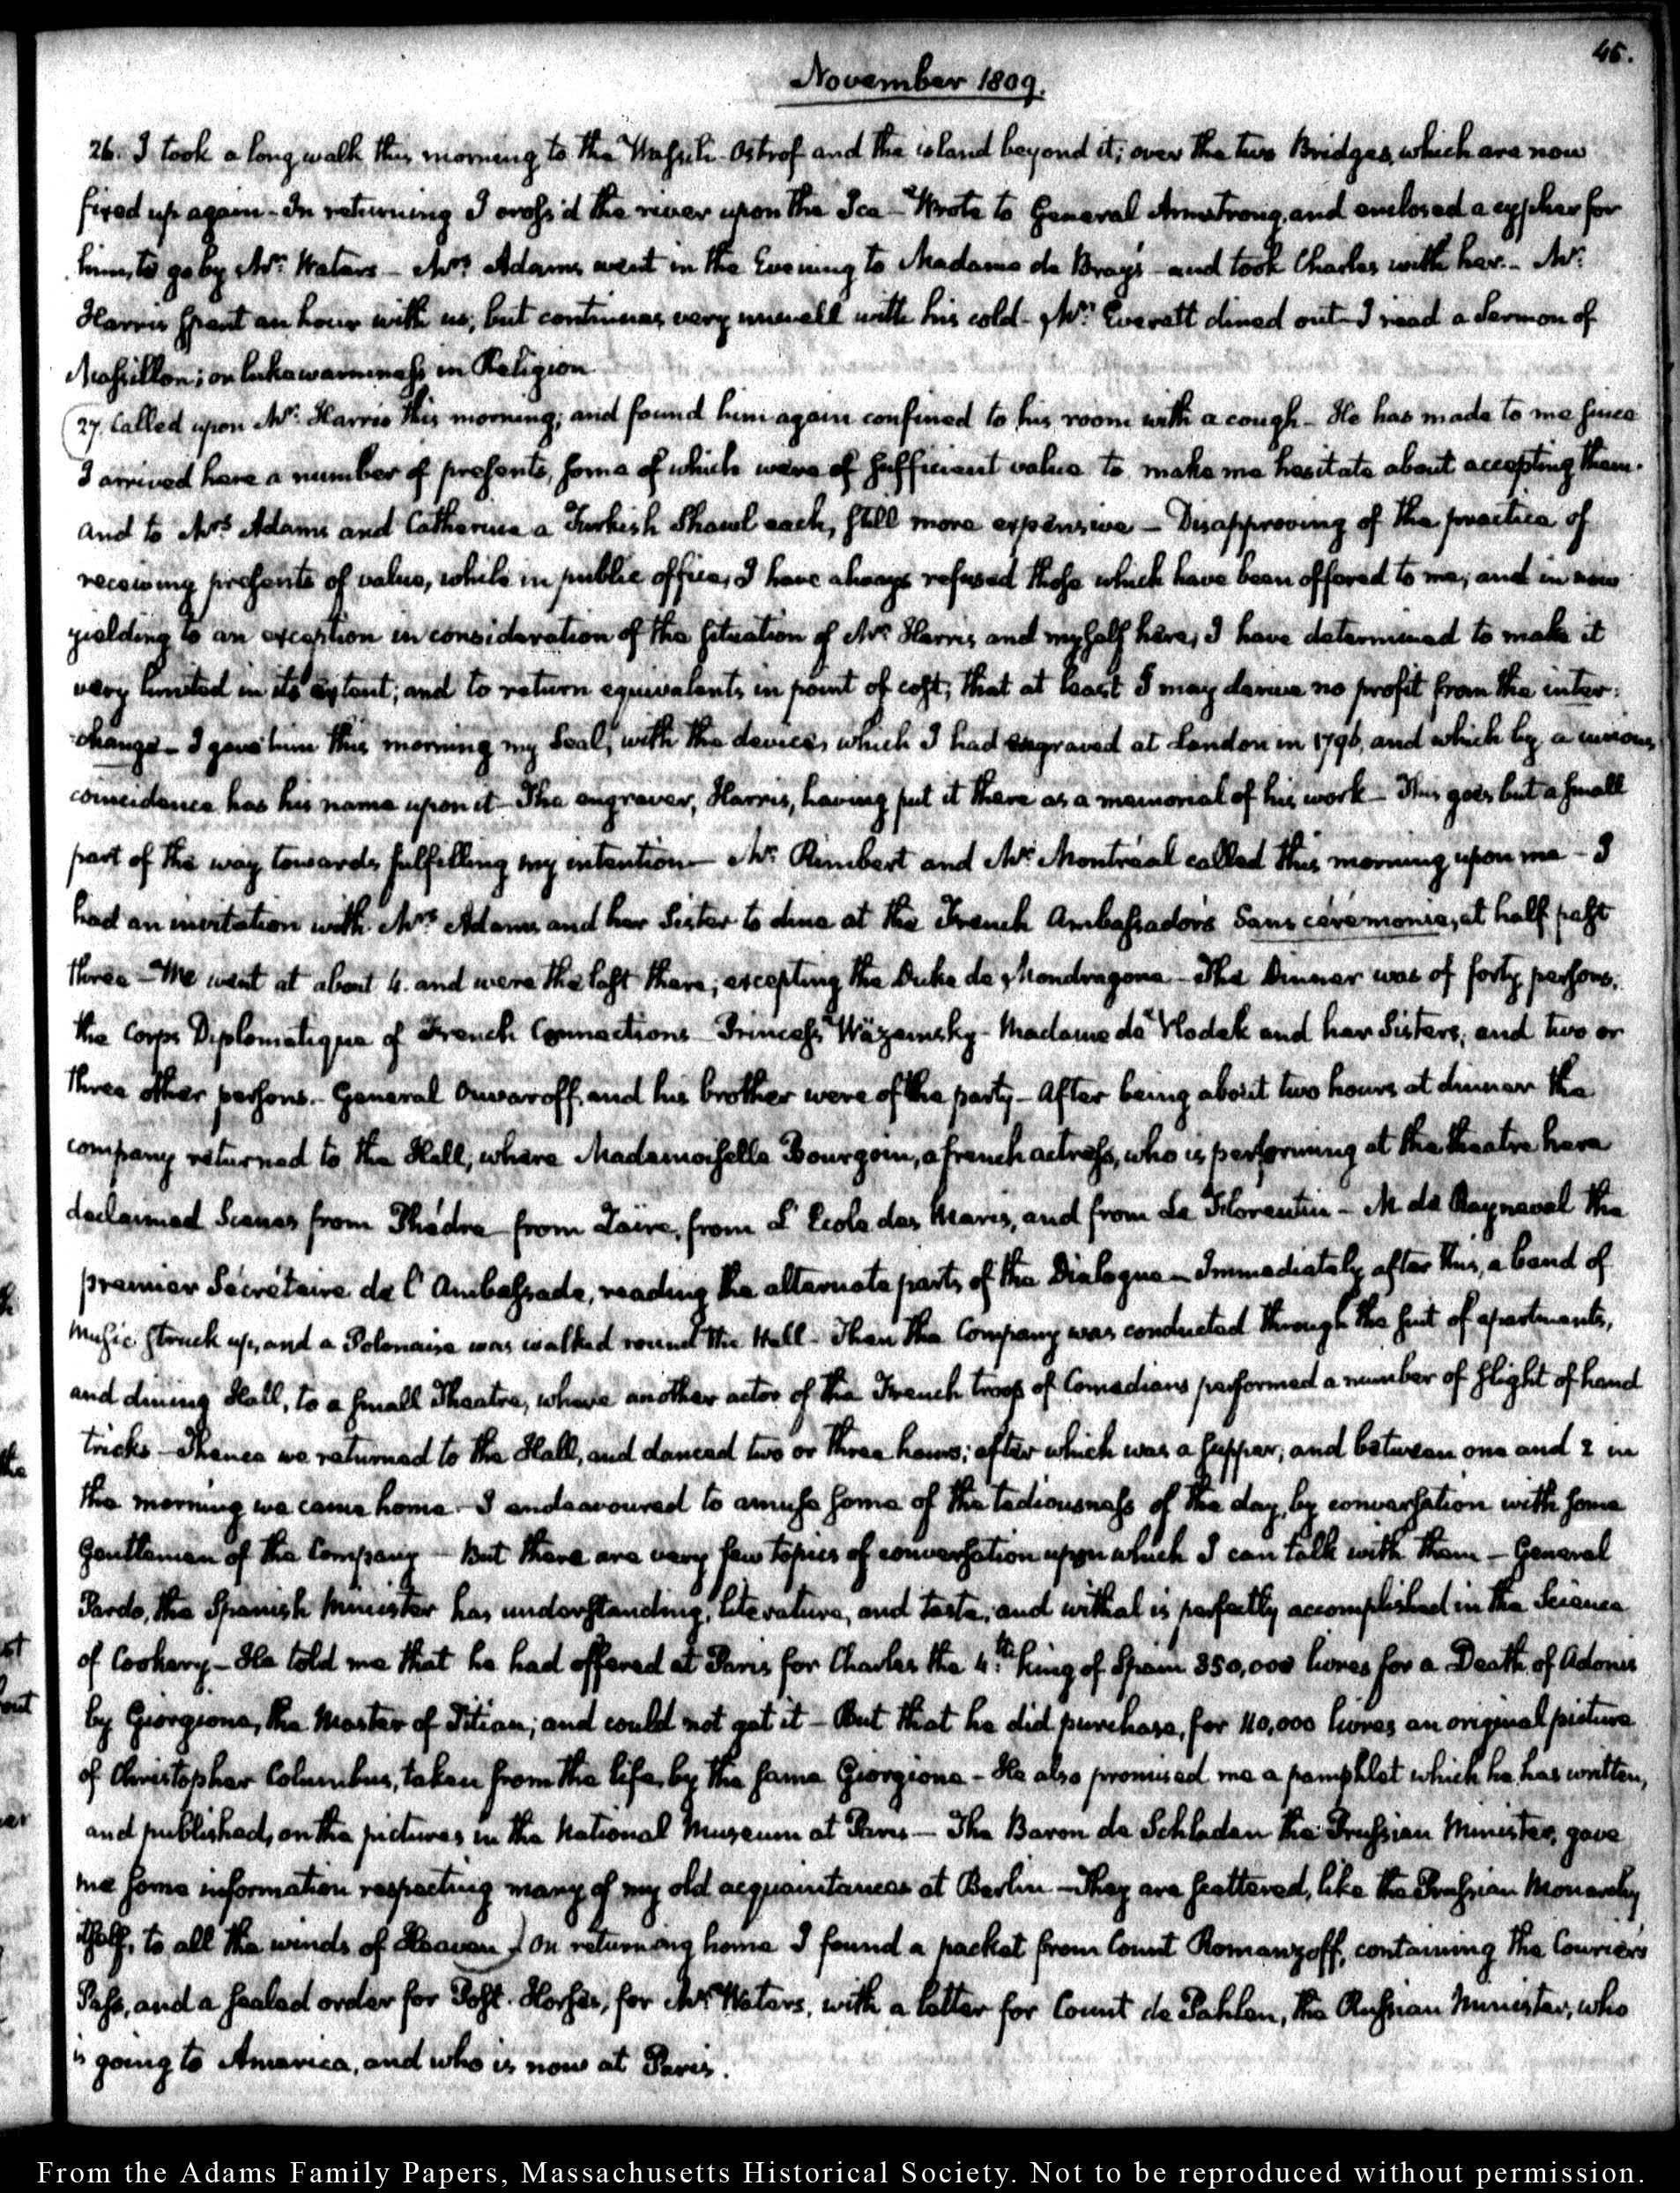 45.
November 1809.
26. I took a long walk this morning to the Wasili-Ostrof and the island beyond it; over the two Bridges, which are now
fixed up again - In returning I cross'd the river upon the Ice - Wrote to General Armstrong, and enclosed a cypher for
him, to go by Mr. Waters - Mrs. Adams went in the Evening to Madame de Bray's - and took Charles with her - Mr.
Harris spent an hour with us; but continues very unwell with his cold - Mr. Everett dined out - I read a Sermon of
Massillon; on lukewarmness in Religion
27. Called upon Mr. Harris this morning; and found him again confined to his room with a cough - He has made to me since
I arrived here a number of presents, some of which were of sufficient value to make me hesitate about accepting them.
and to Mrs. Adams and Catherine a Turkish Shawl each, still more expensive - Disapproving of the practice of
receiving presents of value, while in public office, I have always refused those which have been offered to me, and in now
yielding to an exception in consideration of the situation of Mr. Harris and myself here, I have determined to make it
very limited in its extent; and to return equivalents in point of cost; that at least I may derive no profit from the inter-
change - I gave him this morning my Seal, with the devices which I had engraved at London in 1796, and which by a curious
coincidence has his name upon it - The engraver, Harris, having put it there as a memorial of his work - This goes but a small
part of the way towards fulfilling my intention - Mr. Rimbert and Mr. Montréal called this morning upon me - I
had an invitation with Mrs. Adams and her Sister to dine at the French Ambassador's Sans cérémonie, at half past
three - We went at about 4. and were the last there; excepting the Duke de Mondragone - The Dinner was of forty persons.
the Corps Diplomatique of French Connections - Princess Wäzemsky - Madame de Vlodek and her Sisters, and two or
three other persons - General Ouvaroff, and his brother were of the party - After being about two hours at dinner the
company returned to the Hall, where Mademoiselle Bourgoin, a french actress, who is performing at the theatre here
declaimed Scenes from Phédre from Zaïre, from L'Ecole des Maris, and from Le Florentin - M. de Rayneval the
premier Sécrétaire de l'Ambassade, reading the alternate parts of the Dialogue - Immediately after this, a band of
music struck up, and a Polonaise was walked round the Hall - Then the Company was conducted through the suit of apartments,
and dining Hall, to a small Theatre, where another actor of the French troop of Comedians performed a number of slight of hand
tricks - Thence we returned to the Hall, and danced two or three hours; after which was a supper; and between one and 2 in
the morning we came home - I endeavoured to amuse some of the tediousness of the day, by conversation with some
Gentlemen of the Company - But there are very few topics of conversation upon which I can talk with them - General
Pardo, the Spanish Minister has understanding, literature, and taste, and withal is perfectly accomplished in the Science
of Cookery - He told me that he had offered at Paris for Charles the 4.th King of Spain 350,000 livres for a Death of Adonis
by Giorgione, the Master of Titian; and could not get it - But that he did purchase, for 110,000 livres an original picture
of Christopher Columbus, taken from the life, by the same Giorgione - He also promised me a pamphlet which he has written,
and published, on the pictures in the National Museum at Paris - The Baron de Schladen the Prussian Minister, gave
me some information respecting many of my old acquaintances at Berlin - They are scattered, like the Prussian Monarchy
itself, to all the winds of Heaven) On returning home I found a packet from Count Romanzoff, containing the Courier's
Pass, and a sealed order for Post-Horses, for Mr. Waters, with a letter for Count de Pahlen, the Russian Minister, who
is going to America, and who is now at Paris.
From the Adams Family Papers, Massachusetts Historical Society. Not to be reproduced without permission.